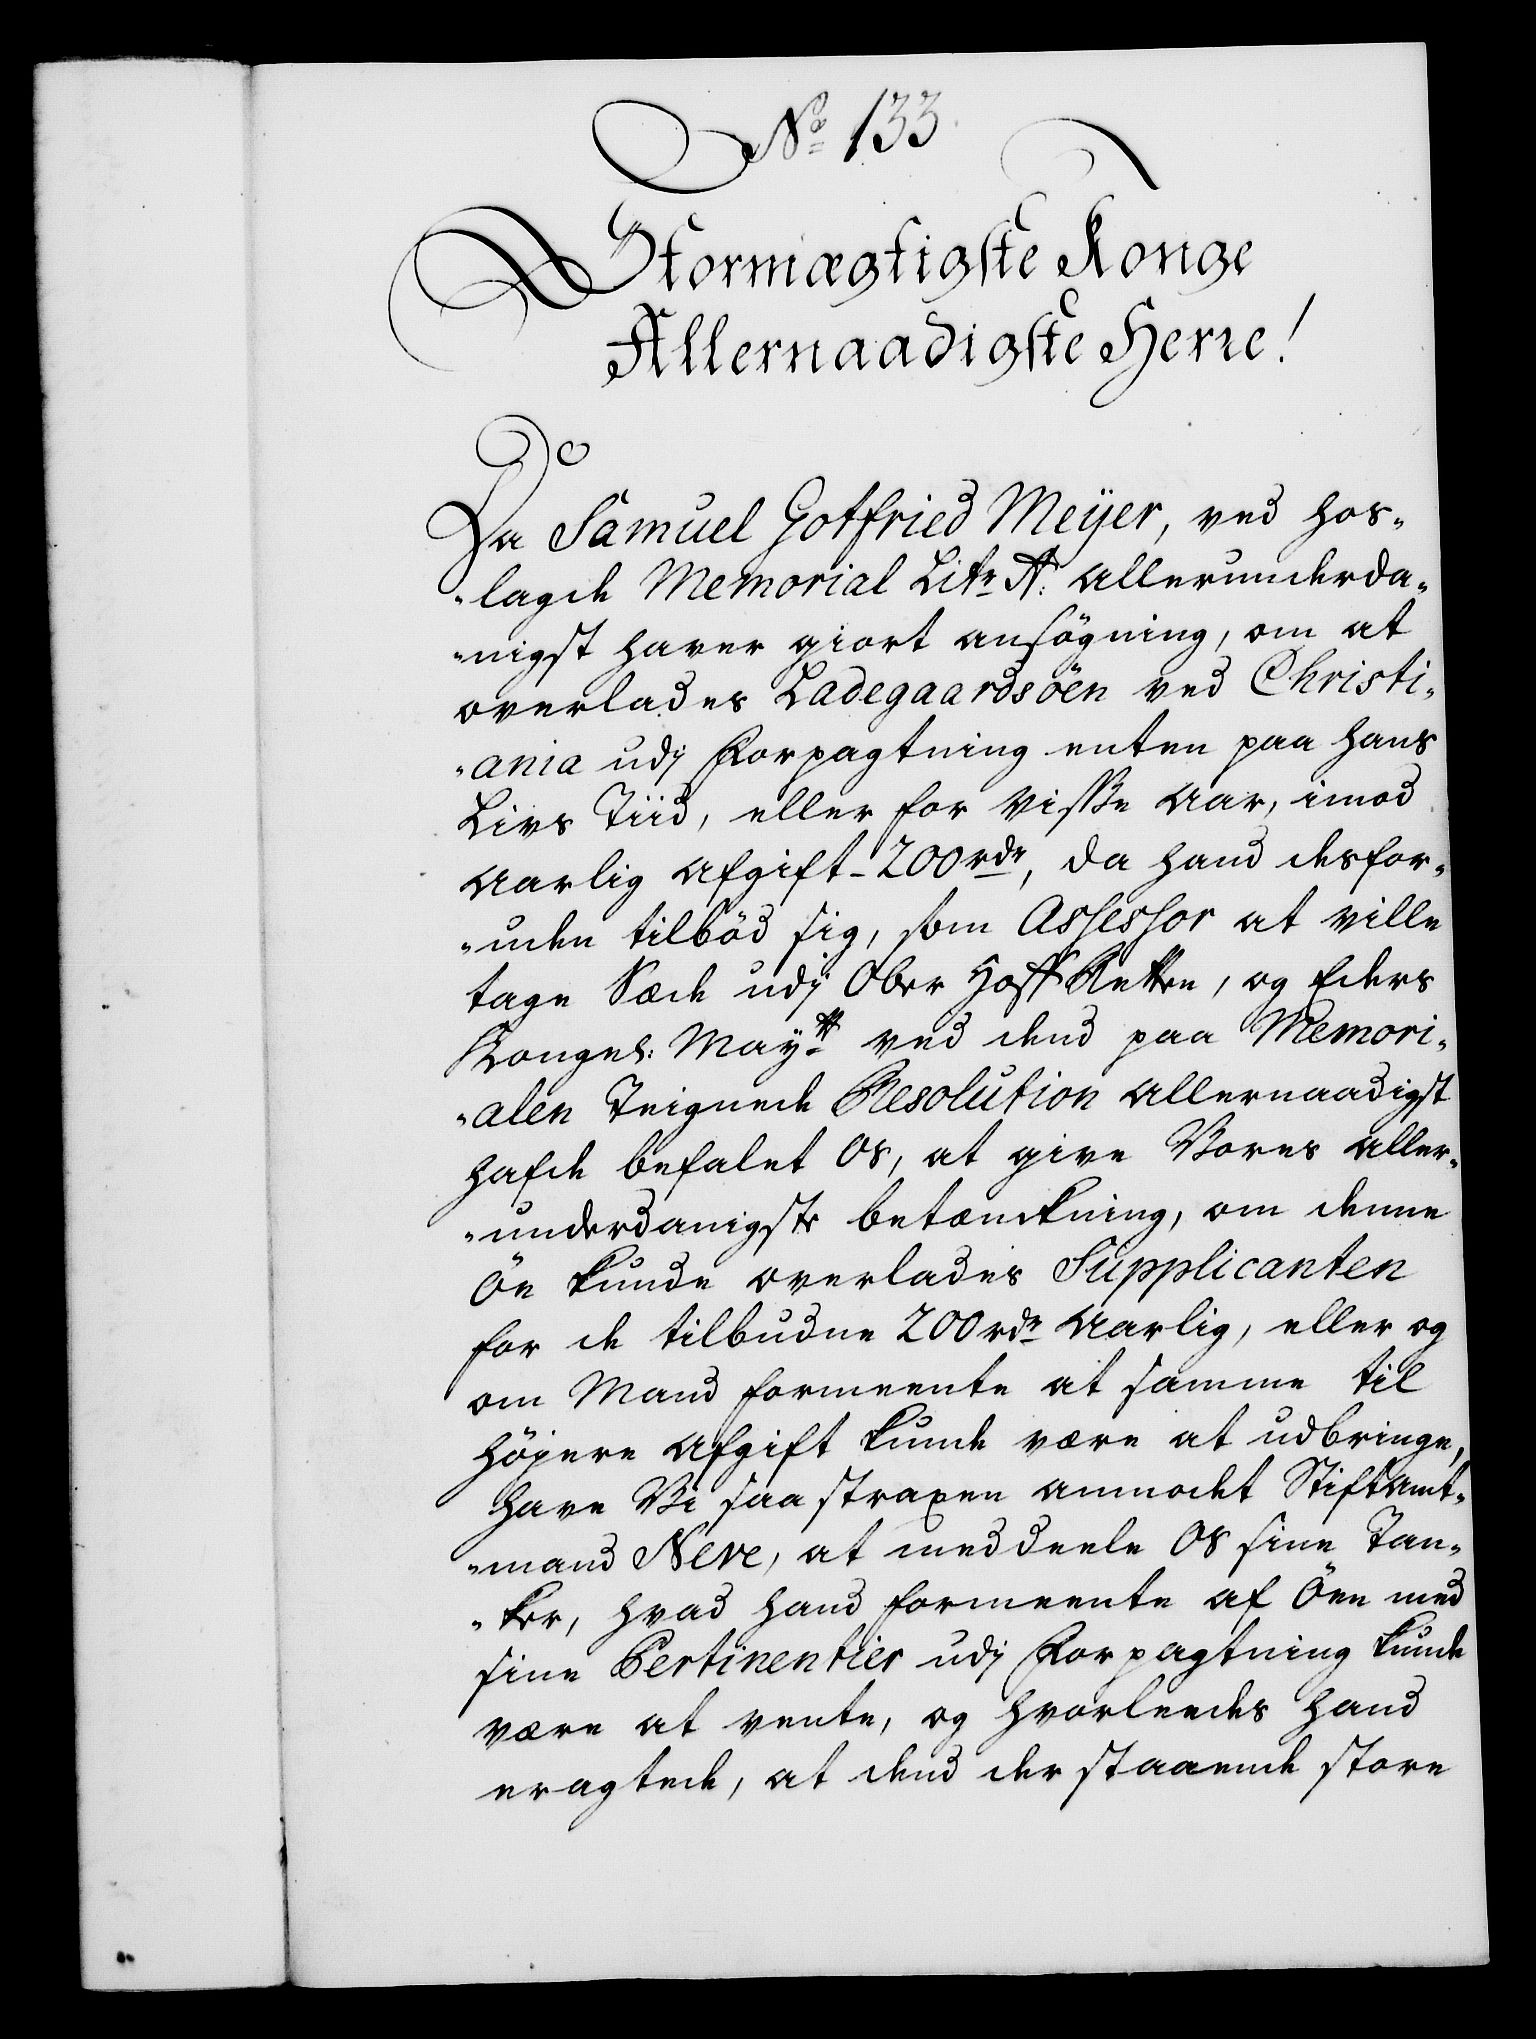 No 133
Stormægtigste Konge
Allernaadigste Herre!
Da Samuel Gotfried Meÿer, ved hos-
-lagde Memorial Litr A: allerunderda-
-nigst haver giort ansögning, om at
overlades Ladegaardsöen ved Christi-
-ania udj Forpagtning enten paa hans
Livs Tiid, eller for visse Aar, imod
aarlig Afgift 200 rdr, da hand desfor-
-uden tilböd sig, som Assessor at ville
tage Sæde udj Ober Hoff Retten, og Eders
Kongel: Maytt ved dend paa Memori-
-alen Teignede Resolution allernaadigst
hafde befalet Os, at give Vores aller-
-underdanigste betænckning, om denne
Öe kunde overlades Supplicanten
for de tilbudne 200 rdr Aarlig, eller og
om Mand formeente at samme til
höjere Afgift kunde være at udbringe,
have Vi saa straxen anmodet Stiftamt-
-mand Neve, at meddeele Os sine Tan-
-ker, hvad hand formeente af Öen med
sine Pertinentier udj Forpagtning kunde
være at vente, og hvorleedes hand
eragtede, at dend der staaende store